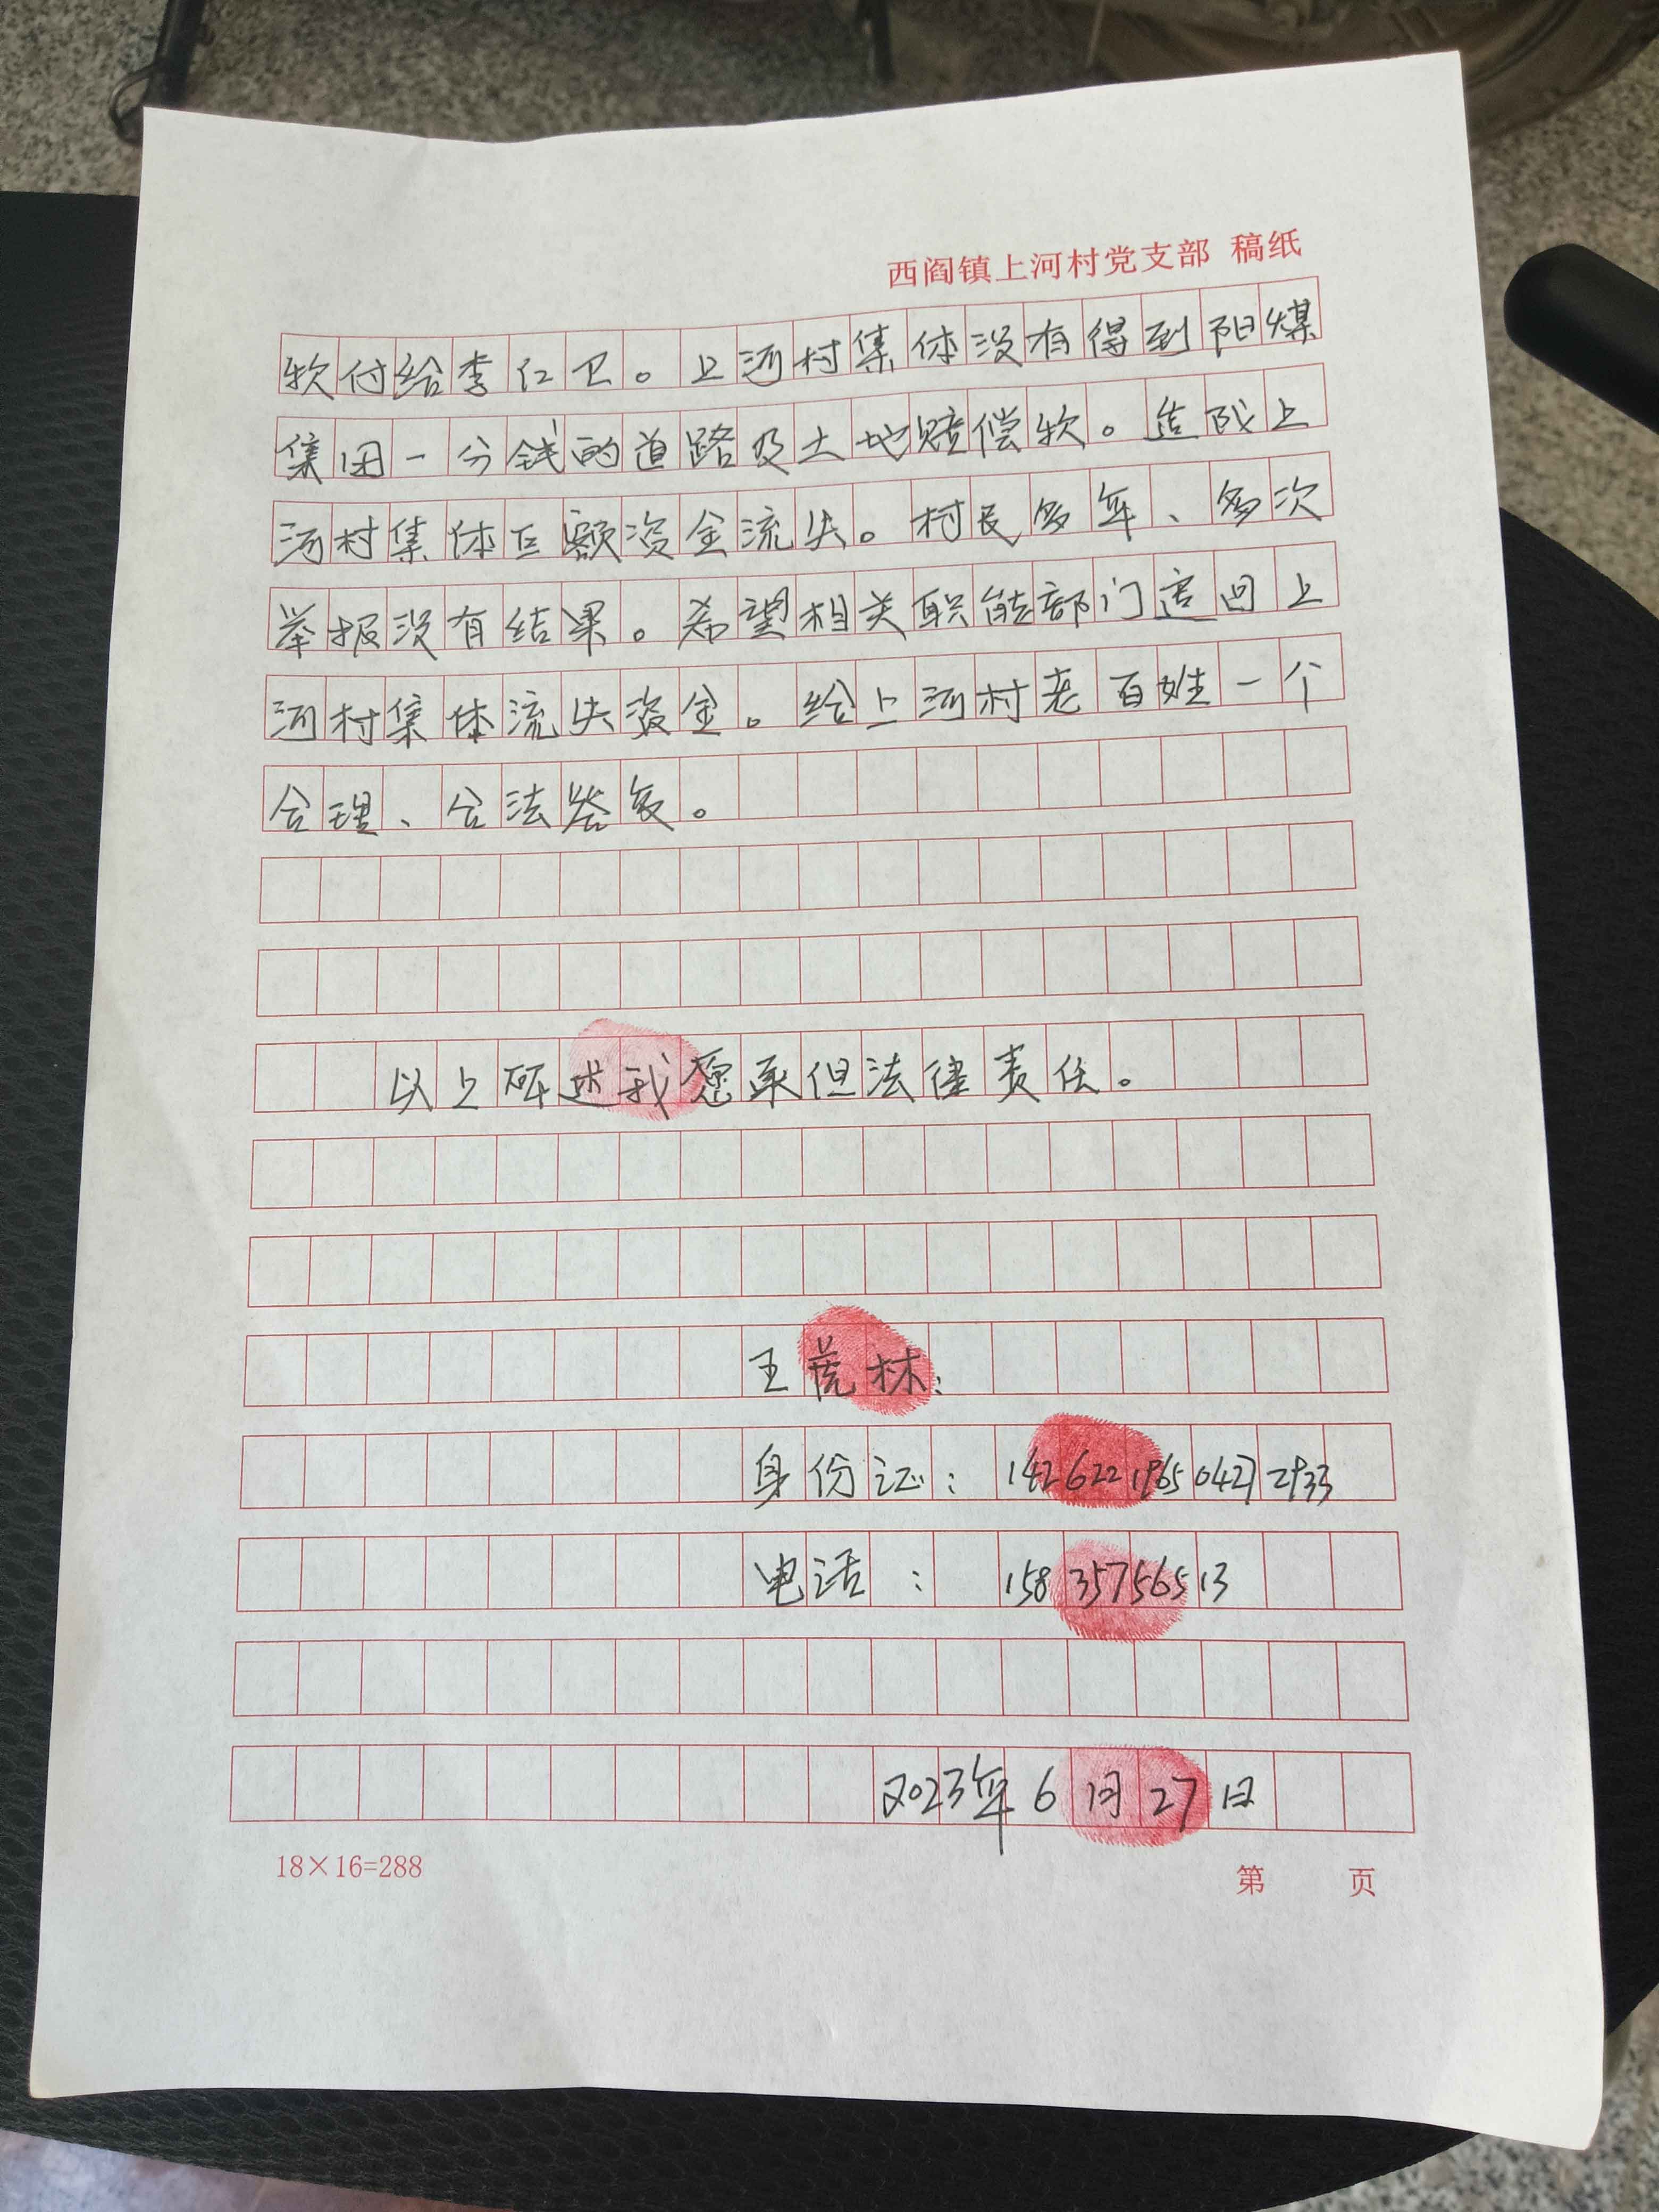 西阎镇上河村党支部 稿纸
款付给李红卫。上河村集体没有得到阳煤
集团一分钱的道路及土地赔偿款。造成上
河村集体巨额资金流失。村民多年、多次
举报没有结果。希望相关职能部门追回上
河村集体流失资金。给上河村老百姓一个
合理、合法答复。
以上所述我愿承但法律责任。
王虎林:
身份证: 142622196504272933
电话: 15835756513
2023年6月27日
18×16=288
第 页